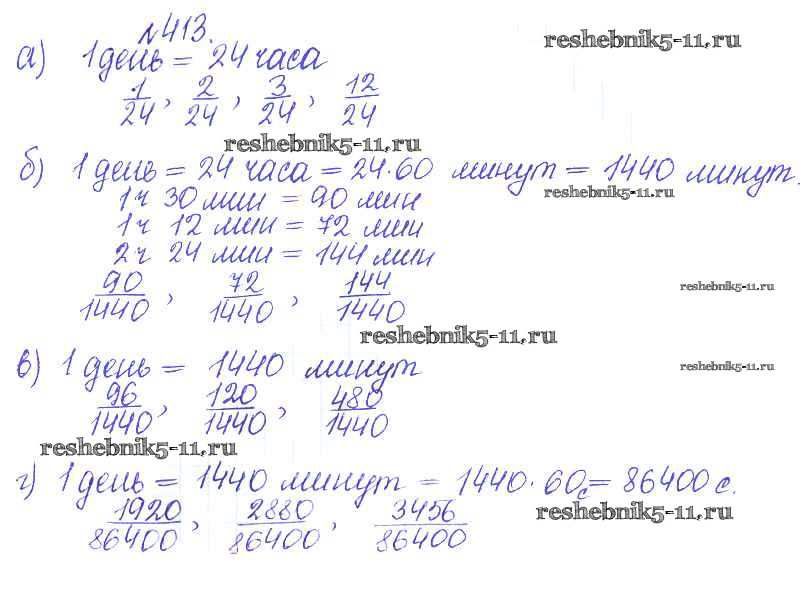 №413.
reshebnik5-11.ru
а) 1 день = 24 часа
1/24, 2/24, 3/24, 12/24
reshebnik5-11.ru
б) 1 день = 24 часа = 24·60 минут = 1440 минут.
reshebnik5-11.ru
1 ч 30 мин = 90 мин
1 ч 12 мин = 72 мин
2 ч 24 мин = 144 мин
90/1440, 72/1440, 144/1440
reshebnik5-11.ru
reshebnik5-11.ru
в) 1 день = 1440 минут
reshebnik5-11.ru
96/1440, 120/1440, 480/1440
reshebnik5-11.ru
г) 1 день = 1440 минут = 1440·60с = 86400 с.
1920/86400, 2880/86400, 3456/86400
reshebnik5-11.ru